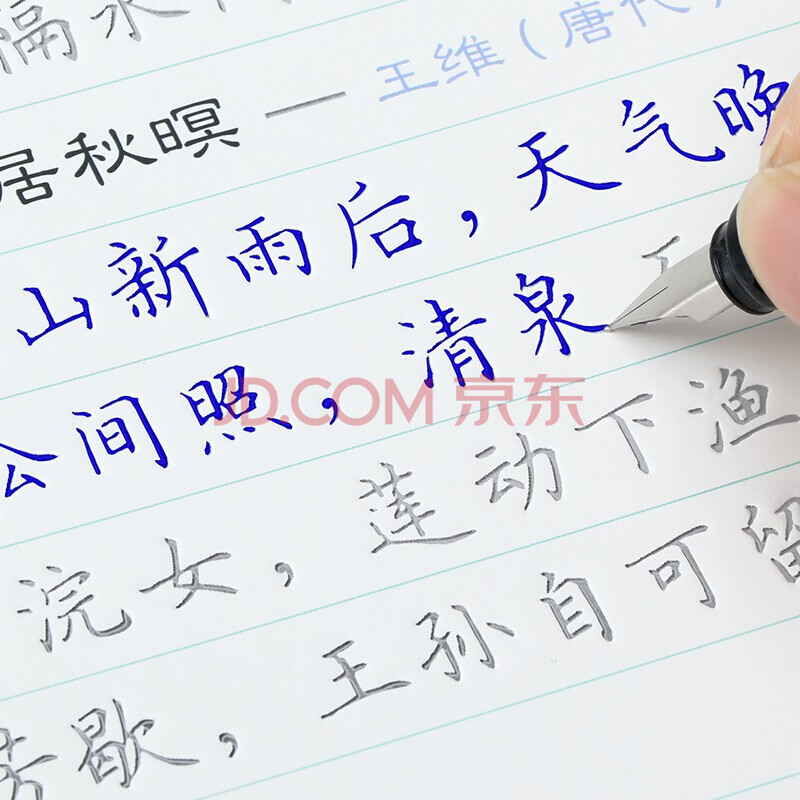 隔水
居秋暝 — 王维(唐代)
山新雨后,天气晚
间照,清泉
JD.COM 京东
浣女,莲动下渔
歇,王孙自可留